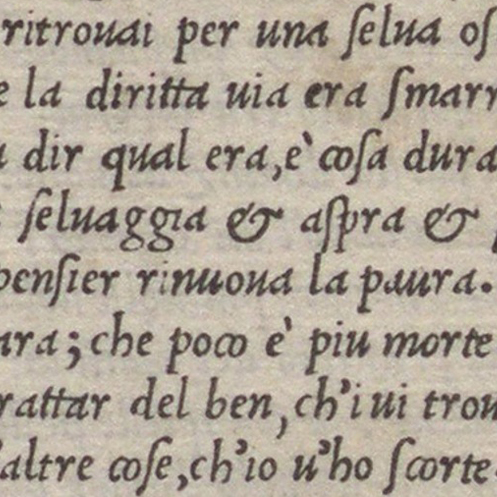 ritrouai per una ſelua oſ
e la diritta uia era ſmarr
dir qual era, e` coſa dura
ſeluaggia & aſpra &
penſier rinuoua la paura.
ara; che poco e` piu morte
rattar del ben, ch'i ui trou
altre coſe, ch'io u'ho ſcorte